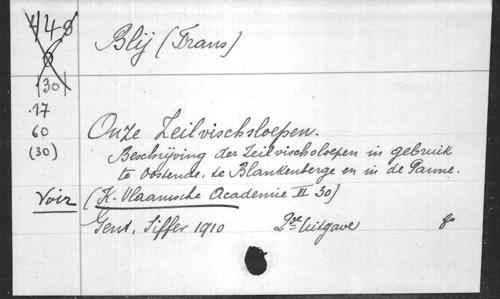 449
8
(30)
Blij (Frans)
17
60
(30)
Onze Zeilvischsloepen.
Beschrijving der Zeilvischsloepen in gebruik
te Oostende, te Blankenberge en in de Panne.
Voir (K. Vlaamsche Academie VI 30)
Gent, Siffer 1910 2de uitgave 8o